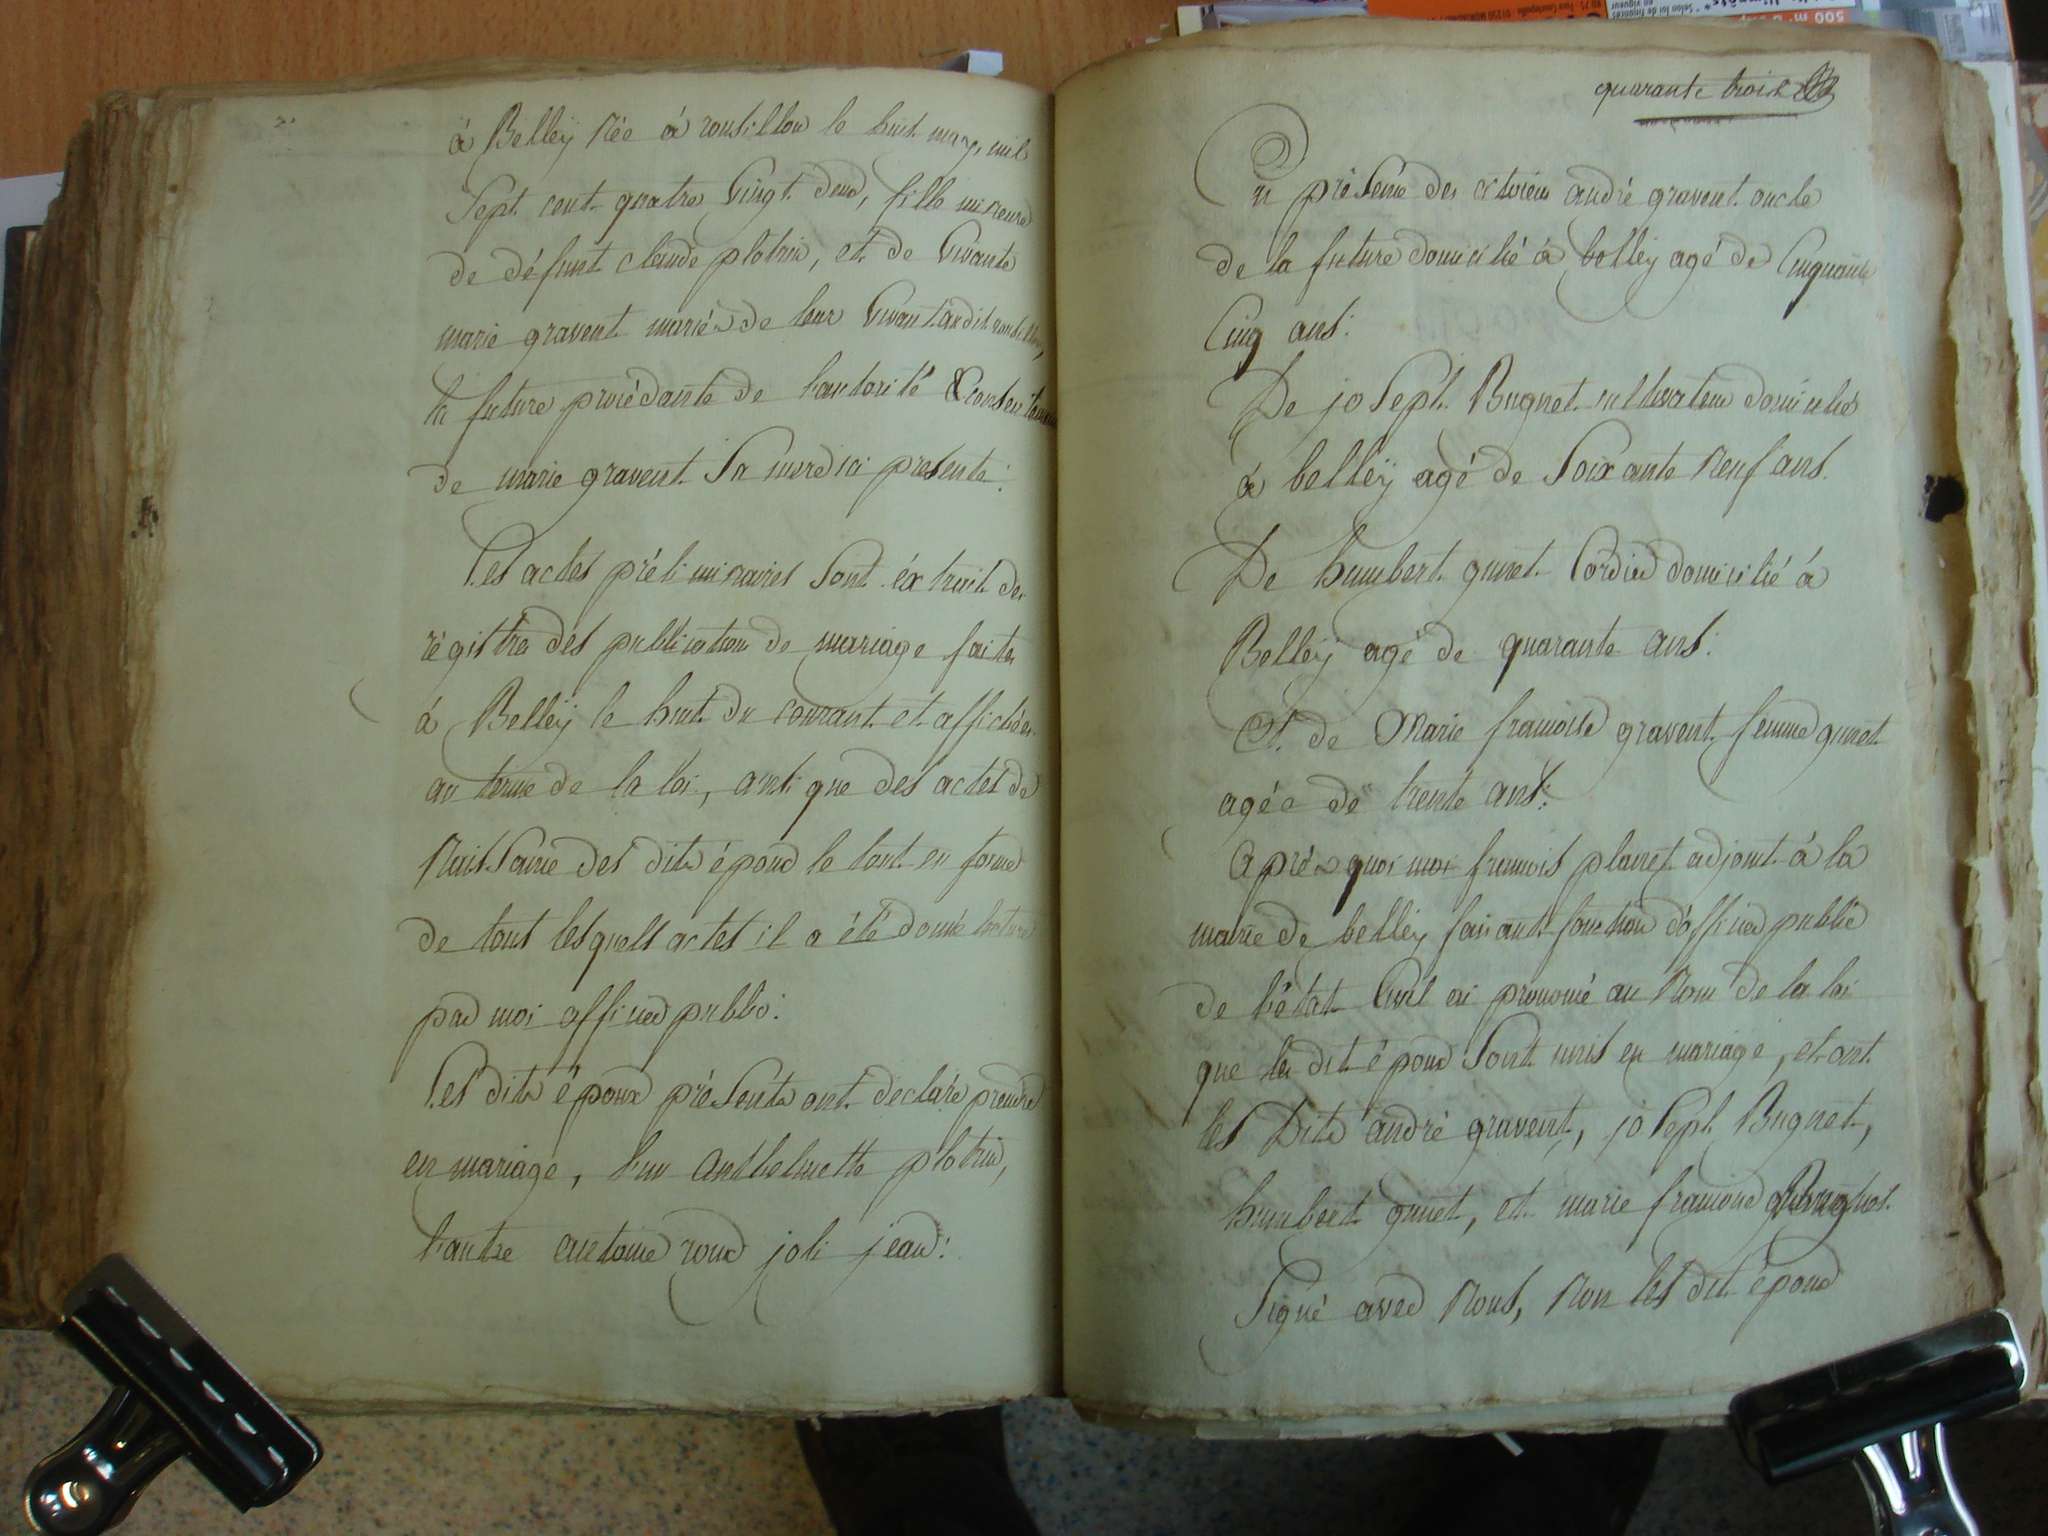 à Belleÿ née à rousillon le huit may, mil
Sept cent quatre vingt deux, fille mineure
de défunt claude plotin, et de vivante
marie gravent mariés de leur vivant audit
la future procédante de l'autorité & consentement
de marie gravent Sa mere ici presente:
Les actes préliminaires Sont éxtrait des
régistre des publication de mariage faites
à Belleÿ le huit du courant et affichées
au terme de la loi, ansi que des actes de
naisSance des dits époux le tout en forme
de tout lesquells actes il a été donné lecture
par moi officier public:
Les dits époux présents ont déclaré prendre
en mariage, l'un anthelmette plotin,
l'autre antoine roux joli jean:
quarante trois
En présence des citoiens andré gravent oncle
de la future domicilié à belley agé de Cinquante
Cinq ans:
De joSeph Bugnet cultivateur domicilié
à belleÿ agé de Soixante neuf ans.
De humbert guinet Cordier domicilié à
Belleÿ agé de quarante ans:
Et de Marie francoise gravent femme guinet
agée de trente ans:
après quoi moi francois planet adjoint à la
mairie de belley faisant fonction d'officier public
de l'état Civil ai prononcé au nom de la loi
que les dit époux Sont unis en mariage, et ont
les Dits andré gravent, joSeph Bugnet,
humbert guinet, et marie francoise
Signé avec nous, non les dit époux